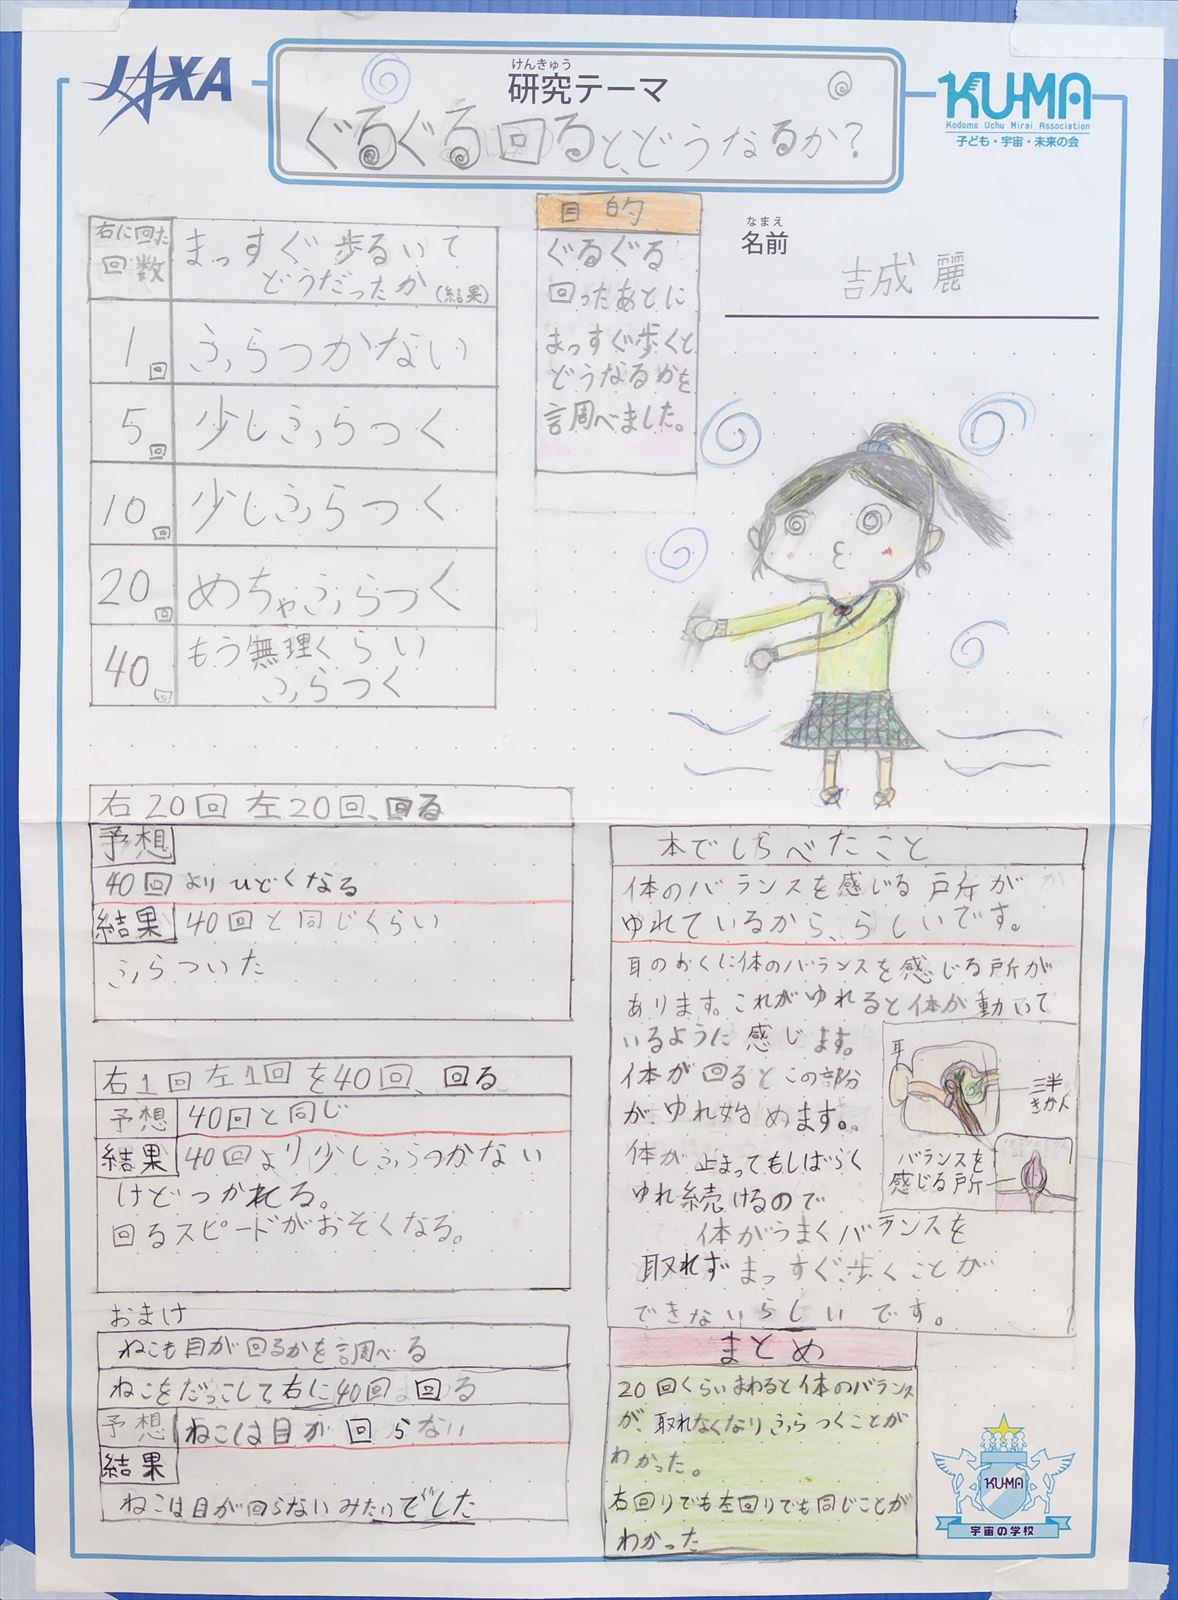 JAXA
けんきゅう
研究テーマ
ぐるぐる回ると、どうなるか?
KU-MA
Kodomo Uchu Mirai Association
子ども・宇宙・未来の会
なまえ
名前
吉成 麗
目的
ぐるぐる
回ったあとに
まっすぐ歩くと
どうなるかを
調べました。
右に回た
回数
まっすぐ歩るいて
どうだったか(結果)
1回 ふらつかない
5回 少しふらつく
10回 少しふらつく
20回 めちゃふらつく
40回 もう無理くらい
ふらつく
右20回 左20回、回る
予想
40回よりひどくなる
結果 40回と同じくらい
ふらついた
右1回左1回を40回、回る
予想 40回と同じ
結果 40回より少しふらつかない
けどつかれる。
回るスピードがおそくなる。
おまけ
ねこも目が回るかを調べる
ねこをだっこして右に40回 回る
予想 ねこは目が回らない
結果
ねこは目が回らないみたいでした
本でしらべたこと
体のバランスを感じる所が
ゆれているから、らしいです。
耳のおくに体のバランスを感じる所が
あります。これがゆれると体が動いて
いるように感じます。
体が回るとこの部分
が、ゆれ始めます。
体が止まってもしばらく
ゆれ続けるので
体がうまくバランスを
取れずまっすぐ歩くことが
できないらしいです。
耳
三半
きかん
バランスを
感じる所
まとめ
20回くらいまわると体のバランス
が、取れなくなりふらつくことが
わかった。
右回りでも左回りでも同じことが
わかった
KU-MA
宇宙の学校